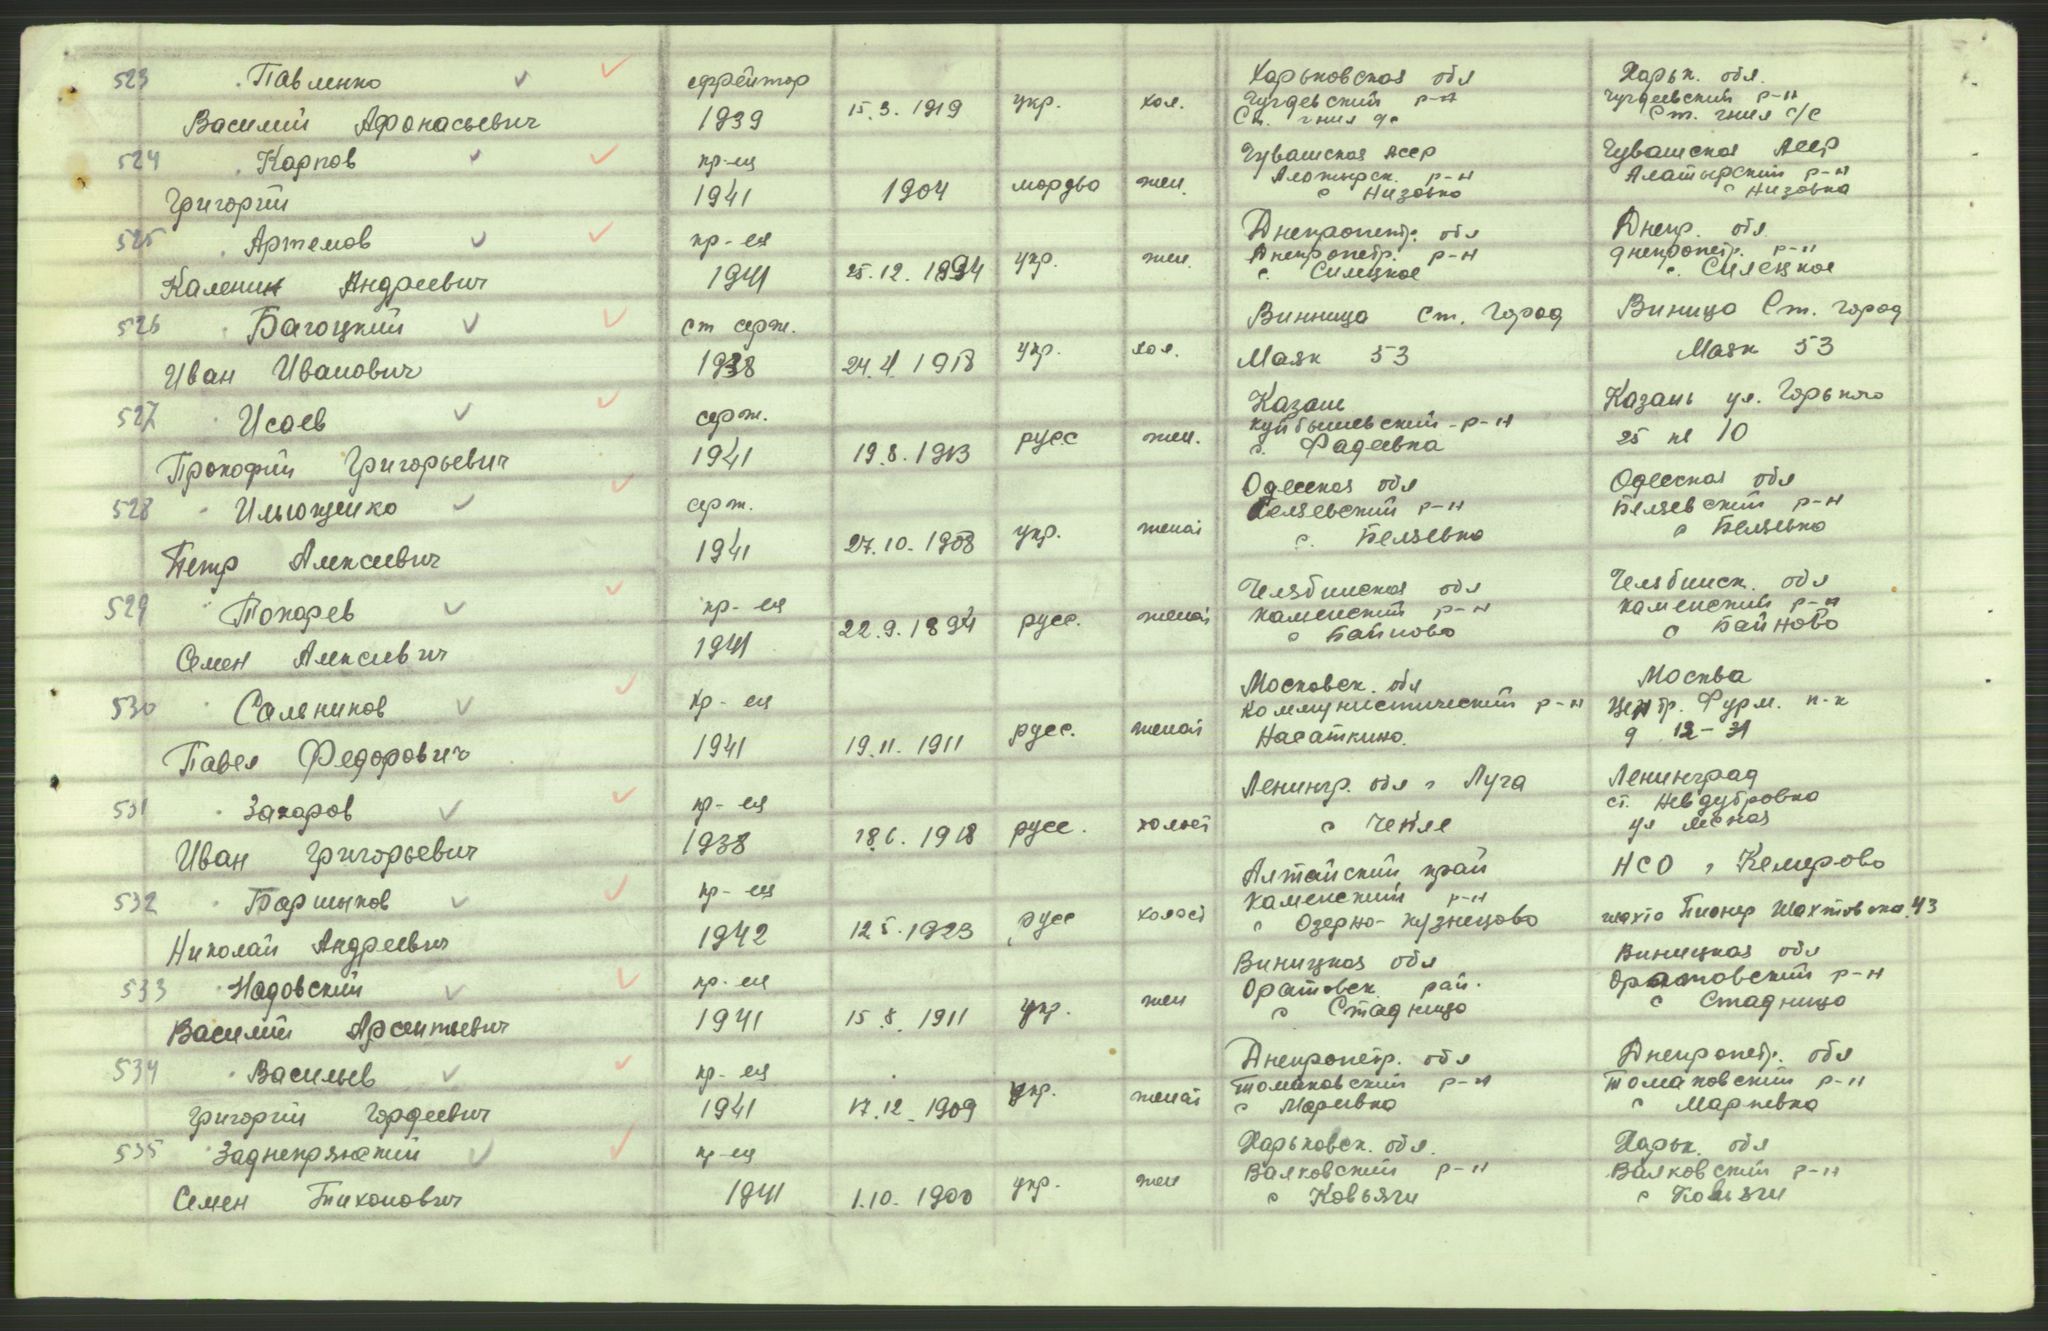 523 Павленко ефрейтор Харьковская обл Харьк. обл.
Василий Афонасьевич 1939 15.3.1919 укр. хол. Чугуевский р-н Чугуевский р-н
524 Карпов кр-ец Чувашская АССР Чувашская АССР
Григорий 1941 1904 мордва жен. Алатырск. р-н Алатырский р-н
с Низовка с Низовка
525 Артемов кр-ец Днепропетр. обл Днепр. обл.
Каленик Андреевич 1941 25.12.1894 укр. жен. Днепропетр. р-н днепропетр. р-н
с. Силецкое с. Силецкое
526 Багоцкий ст серж. Винница Ст. Город Виница Ст. город
Иван Иванович 1938 24.4.1918 укр. хол. Маяк 53 Маяк 53
527 Исаев серж. Казань Казань ул. Горького
Прокофий Григорьевич 1941 19.8.1913 русс жен. Куйбышевский р-н 25 кв 10
с. Фадеевка
528 Ильющенко серж. Одесская обл Одесская обл
Петр Алексеевич 1941 27.10.1908 укр. женат Беляевский р-н Беляевский р-н
с. Беляевка с Беляевка
529 Токарев кр-ец Челябинская обл Челябинск. обл
Семен Алексеевич 1941 22.9.1894 русс. женат каменский р-н каменский р-н
с Байново с Байново
530 Сальников кр-ец Московск. обл Москва
Павел Федорович 1941 19.11.1911 русс. женат Коммунистический р-н Центр. Фурм. п-к
Насаткино. д 12-31
531 Захаров кр-ец Ленингр. обл г Луга Ленинград
Иван Григорьевич 1938 18.6.1918 русс. холост с ст. Невдубровка
ул лесная
532 Паршиков кр-ец Алтайский край НСО г Кемерово
Николай Андреевич 1942 12.5.1923 русс холост каменский р-н шахта Пионер Шахтовска 43
с Озерно-Кузнецово
533 Надовский кр-ец Виницкая обл Виницкая обл
Василий Арсентьевич 1941 15.8.1911 укр. жен Оратовск. рай. Оратовский р-н
с Стадница с Стадница
534 Васильев кр-ец Днепропетр. обл Днепропетр. обл
Григорий Гордеевич 1941 17.12.1909 укр. женат Томаковский р-н Томаковский р-н
с Мариевка с Марпевка
535 Заднепрянский кр-ец Харьковск. обл. Харьк. обл
Семен Тихонович 1941 1.10.1900 укр. жен Валковский р-н Валковский р-н
с Ковьяги с Ковьяги